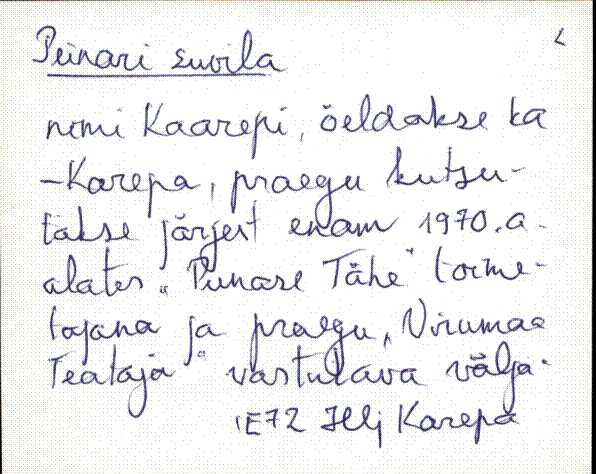 Peinari suvila
nimi Kaarepi, öeldakse ka
-Karepa, praegu kutsu-
takse järjest enam 1970.a.
alates „Punase Tähe" toime-
tajana ja praegu „Virumaa
Teataja" vastutava välja-
Karepa